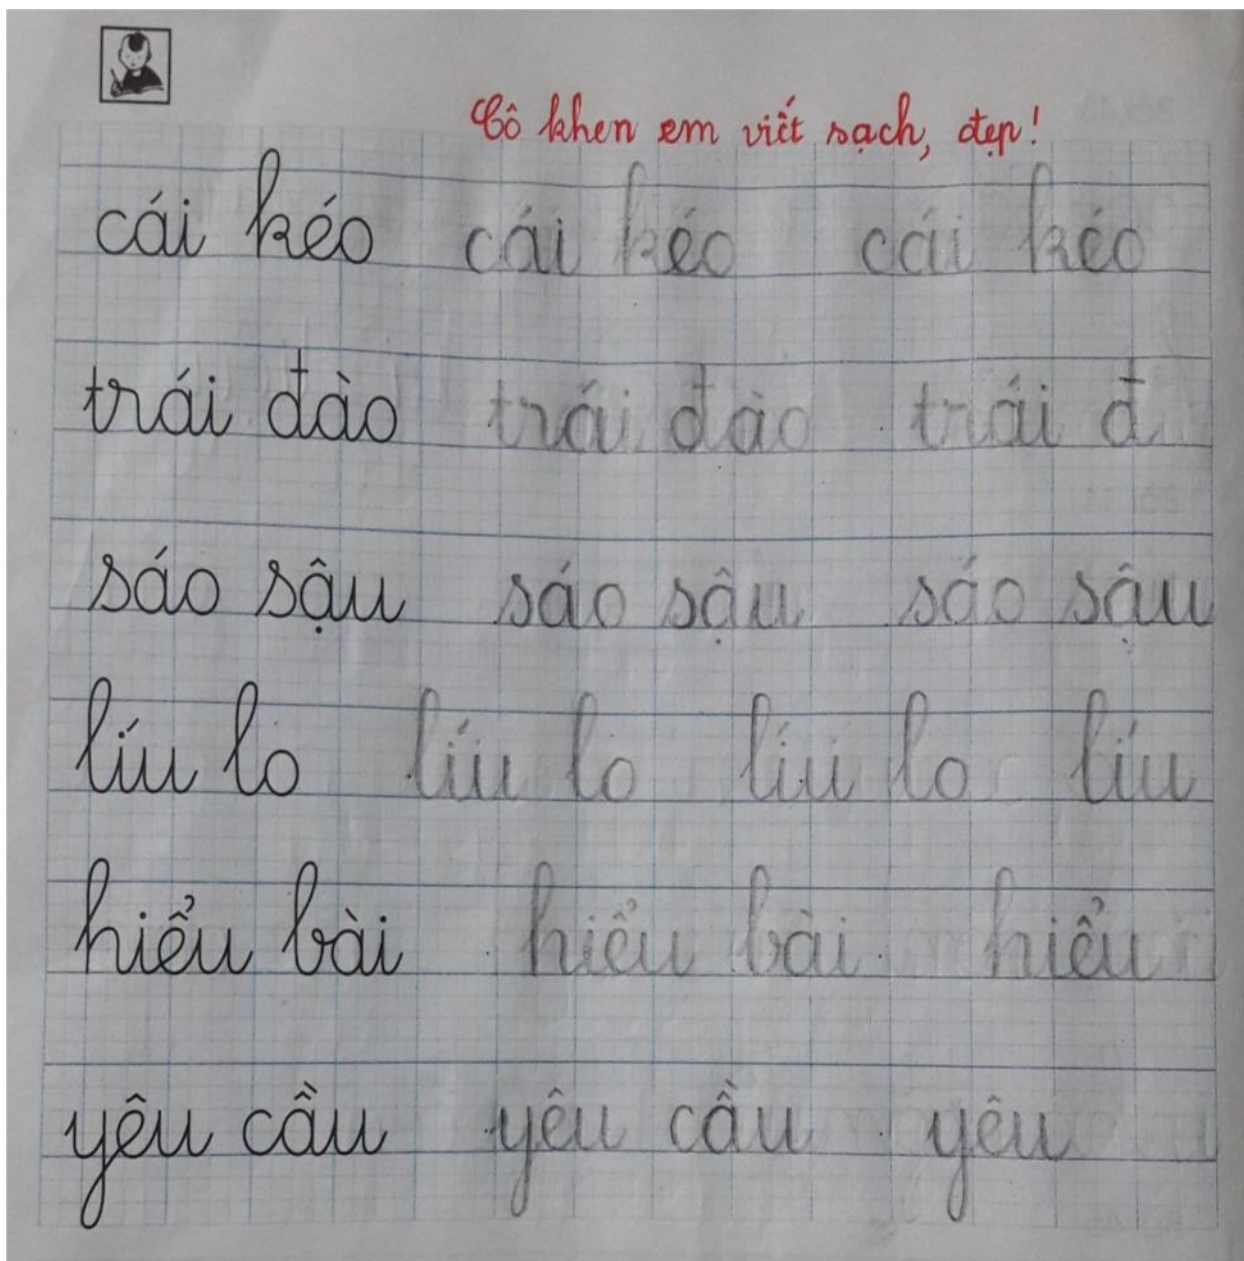 Cô khen em viết sạch, đẹp!
cái kéo cái kéo cái kéo
trái đào trái đào trái đ
sáo sậu sáo sậu sáo sậu
líu lo líu lo líu lo líu
hiểu bài hiểu bài hiểu
yêu cầu yêu cầu yêu